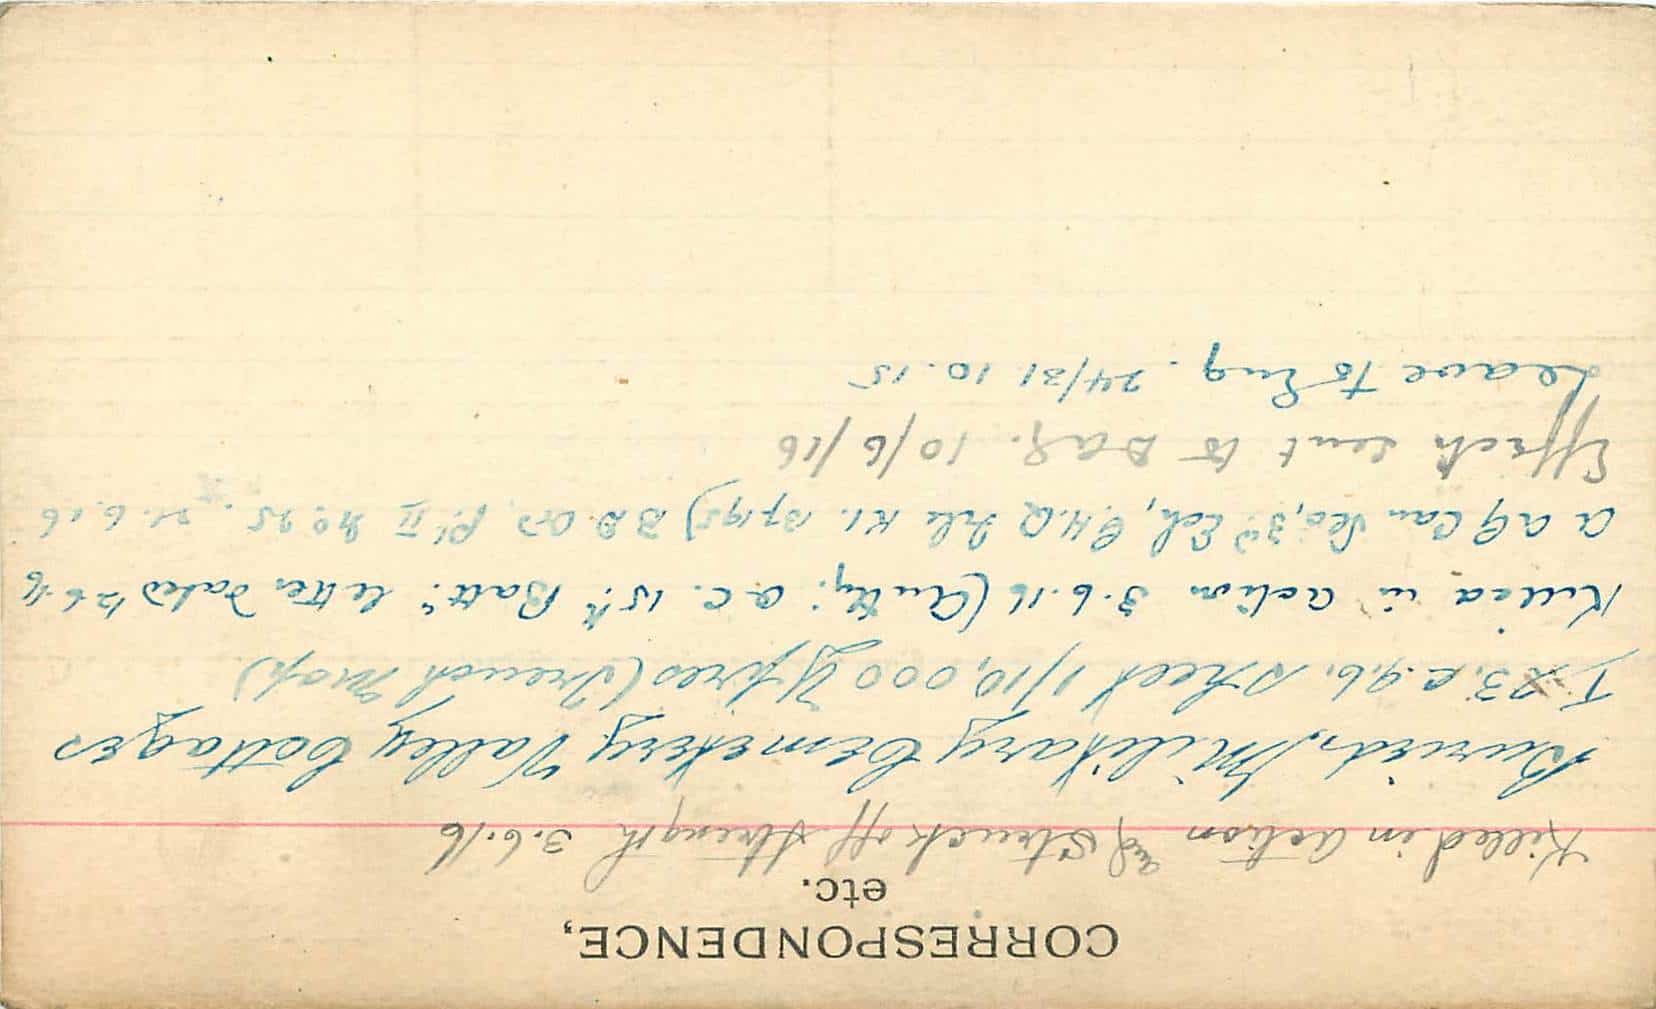 CORRESPONDENCE,
etc.
Killed in action and Struck off Strength 3.6.16
Buried. Military Cemetery Valley Cottages
I 23. c.9.6. Sheet 1/10,000 Ypres (Trench Map)
Killed in action 3.6.16 (Auth: O.C. 15th Batt: letter dated
A A G Can Sec, 3rd Ech, G.H.Q file K1. ) B.D.O. Pt II No 25. 21.6.16
Effects sent to D A G. 10/6/16
Leave to Eng. 24/31.10.15